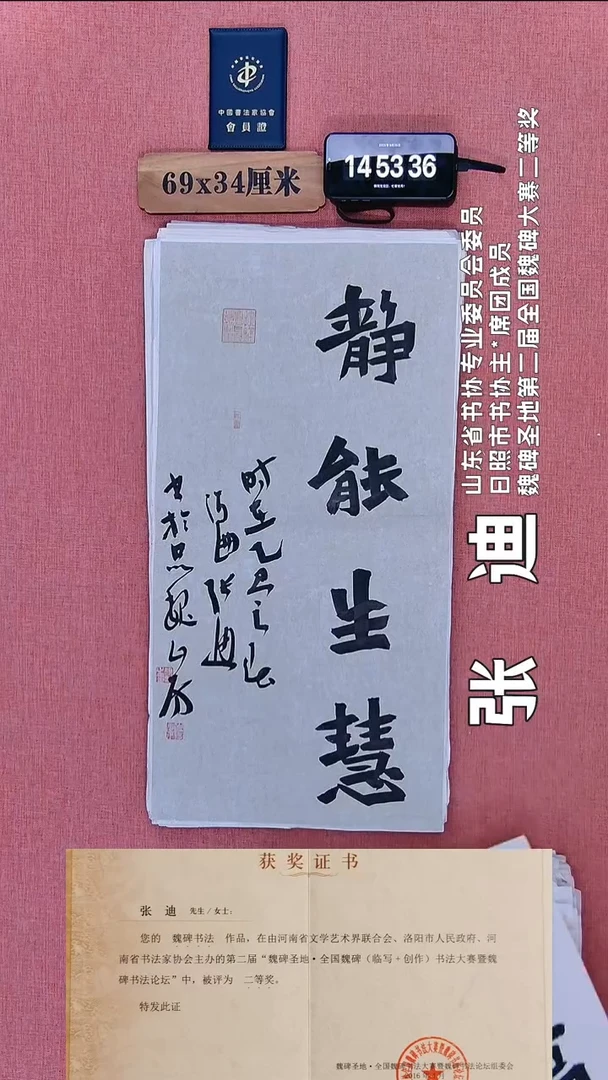 中國書法家協會
會員證
69x34厘米
14 53 36
山东省书协专业委员会委员
日照市书协主*席团成员
魏碑圣地第二届全国魏碑大赛二等奖
张 迪
静能生慧
时在乙巳之春
张迪
书于
获奖证书
张 迪 先生／女士：
您的 魏碑书法 作品，在由河南省文学艺术界联合会、洛阳市人民政府、河
南省书法家协会主办的第二届“魏碑圣地·全国魏碑（临写+创作）书法大赛暨魏
碑书法论坛”中，被评为 二等奖。
特发此证
魏碑圣地·全国魏碑书法大赛暨魏碑书法论坛组委会